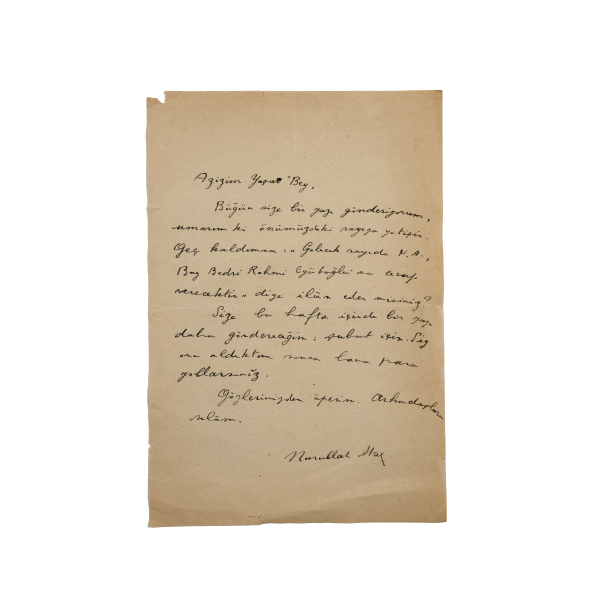 Azizim Yaşar Bey,
Bugün size bir yazı gönderiyorum,
umarım ki önümüzdeki sayıya yetişir.
Geç kaldımsa: "Gelecek sayıda N. A.,
Bay Bedri Rahmi Eyüboğlu'na cevap
verecektir" diye ilân eder misiniz?
Size bu hafta içinde bir yazı
daha göndereceğim: şubat için. Siz
onu aldıktan sonra bana para
yollarsınız.
Gözlerinizden öperim. Arkadaşlara
selâm.
Nurullah Ataç